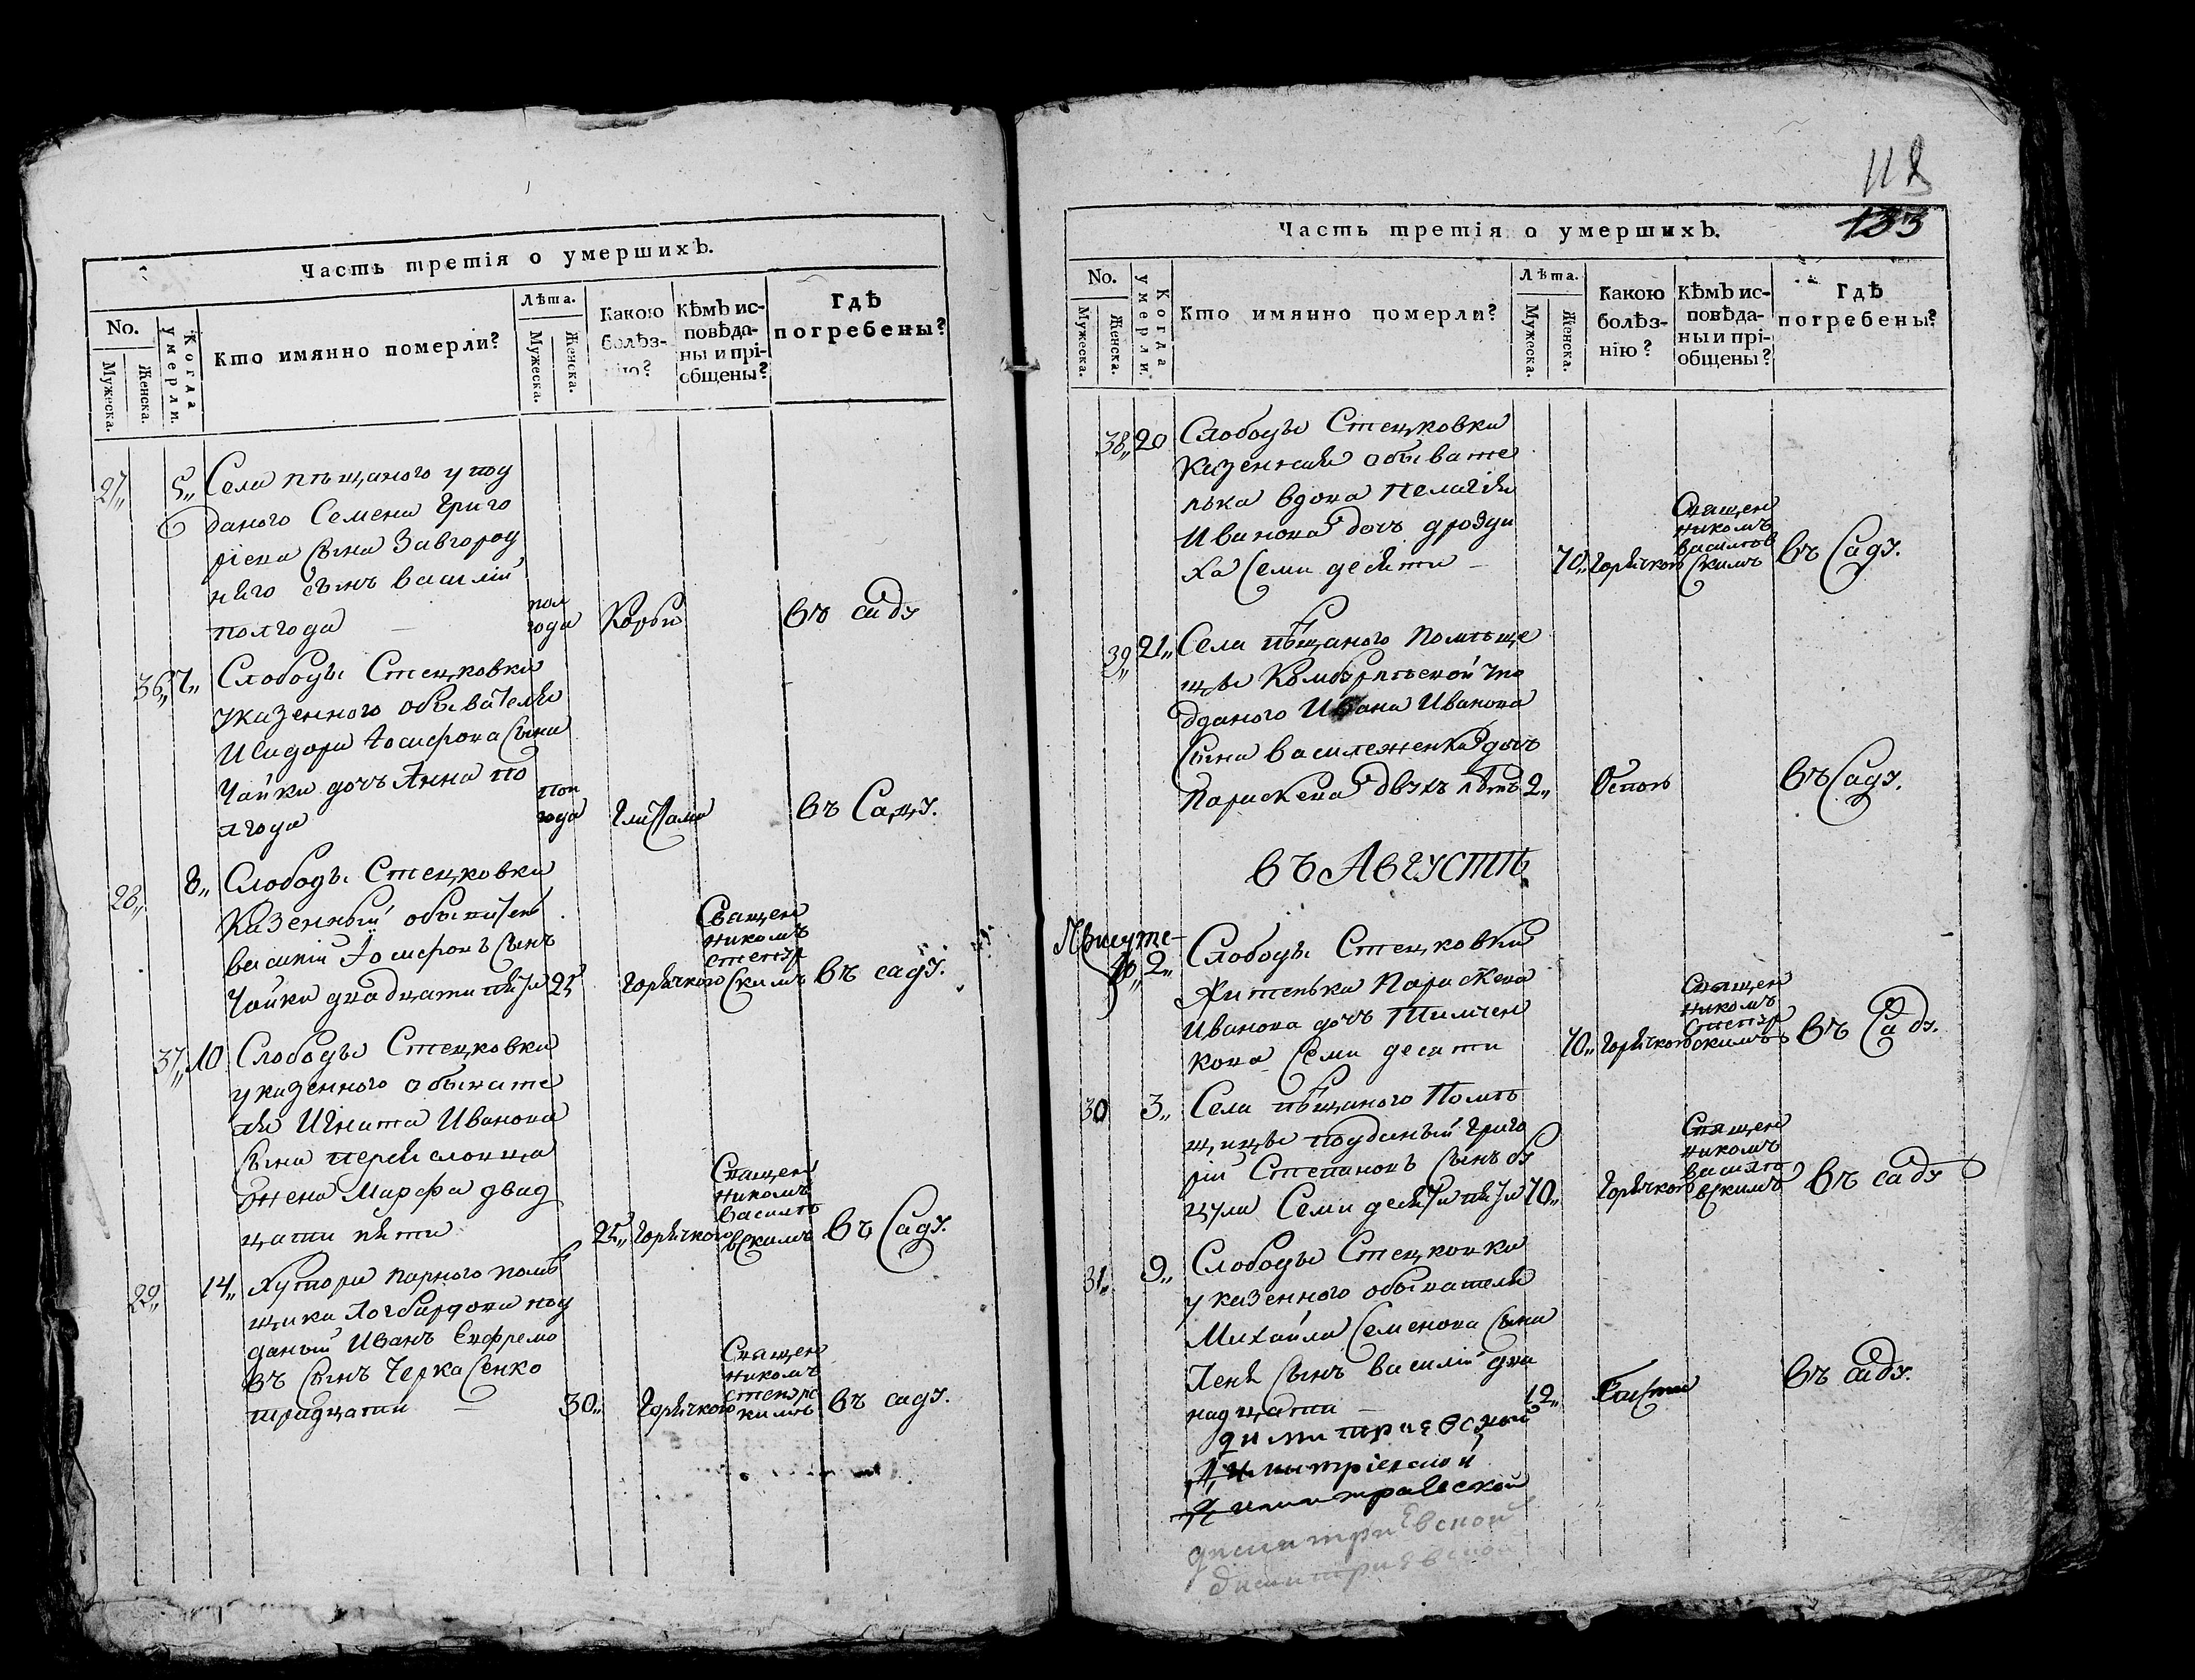 Часть третія о умершихъ.
No.
Мужеска.
Женска.
Когда умерли.
Кто имянно померли?
Лѣта.
Мужеска.
Женска.
Какою
болѣз-
нію?
Кѣмъ ис-
повѣда-
ны и прі-
общены?
Гдѣ
погребены?
27„ 5„ Села пѣщаного у под
даного Семена Григо
ріева Сына Завгород
няго сынъ василій
полгода пол года Корби въ саду
36„ 7„ Слободы Стецковки
указенного обывателя
Исидора Іосифова Сына
Чайки дочъ Анна по
лгода пол года Глистами въ Саду.
28„ 8„ Слободы Стецковки
Казенный обыватель
василій Іосифовъ Сынъ
Чайка двадцати пяти 25 Горячкою Священ никомъ Стенур Скимъ въ саду.
37„ 10 Слободы Стецковки
указенного обывате
ля Игната Иванова
Сына переяславца
жена Марфа двад
цати пяти 25„ Горячкою Священ никомъ василь вскимъ въ Саду.
29„ 14„ Хутора парного помѣ
щика под
даный Иванъ Евфремо
въ Сынъ ЧеркаСенко
тридцати 30„ Горячкою Священ никомъ Стенурс кимъ въ саду.
118
133
Часть третія о умершихъ.
No.
Мужеска.
Женска.
Когда умерли.
Кто имянно померли?
Лѣта.
Мужеска.
Женска.
Какою
болѣз-
нію?
Кѣмъ ис-
повѣда-
ны и прі-
общены?
Гдѣ
погребены?
38„ 20 Слободы Стецковки
Казенная обывате
лька вдова Пелагія
Иванова дочъ дрозди
ха Семи десяти 70„ Горячкою Священ никомъ василев Скимъ въ Саду.
39„ 21„ Села пѣщаного Помѣще
цы Комбурлѣевой у по
дданого Ивана Иванова
Сына василеженка дочъ
Параскева двухъ лѣтъ 2„ Оспою въ Саду.
въ Августѣ
Августе
40„ 2„ Слободы Стецковки
Жителька Параскева
Иванова дочъ
кова Семи десяти 70„ Горячкою Священ никомъ Стенур скимъ въ Саду.
30 3„ Села пѣщаного Помѣ
щицы подданый Григо
рій Степановъ Сынъ Бу
цула Семи десяти пяти 70„ Горячкою Священ никомъ василе вскимъ въ саду
31„ 9„ Слободы Стецковки
указенного обывателя
Михайла Семенова Сына
Пеня Сынъ василій два
надцати 12„ въ саду.
димитриевской
Димитріевской
Димитриевской
димитриевской
димитриевской